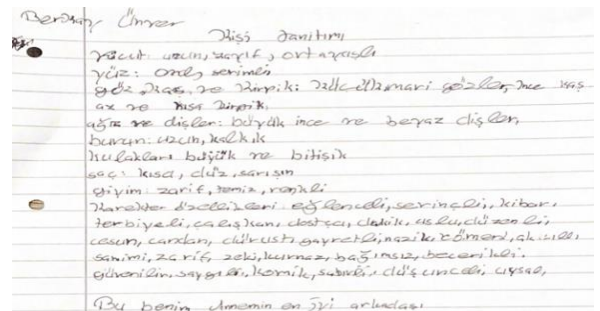 Berkay Ünver
Kişi tanıtımı
vücut: uzun, zayıf, ortayaşlı
yüz: oval, serimli
göz, kaş ve kirpik: küçük, mavi gözler, ince kaş
az ve kısa kirpik.
ağız ve dişler: büyük ince ve beyaz dişler,
burun: uzun, kalkık
kulakları büyük ve bitişik
saç: kısa, düz, sarışın
giyim: zarif, temiz, renkli
Karekter özellikleri: eğlenceli, sevinçli, kibar,
terbiyeli, çalışkan, dostça, uslu, düzenli,
cesur, candan, dürüst, gayretli, nazik, cömert, akıllı
samimi, zarif, zeki, kurnaz, bağımsız, becerikli,
güvenilir, saygılı, komik, sabırlı, düşünceli, uysal,
Bu benim annemin en iyi arkadaşı